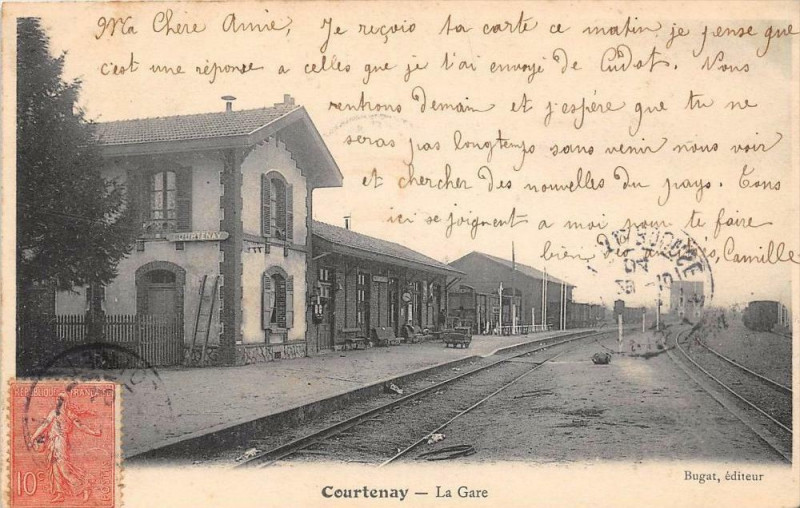 Ma Chère Amie, Je reçois ta carte ce matin je pense que
c'est une réponse a celles que je t'ai envoyé de Cudot. Nous
rentrons demain et j'espère que tu ne
seras pas longtemps sans venir nous voir
et chercher des nouvelles du pays. Tous
ici se joignent a moi pour te faire
bien des Camille
COURTENAY
REPUBLIQUE FRANÇAISE
10c
Bugat, éditeur
Courtenay — La Gare